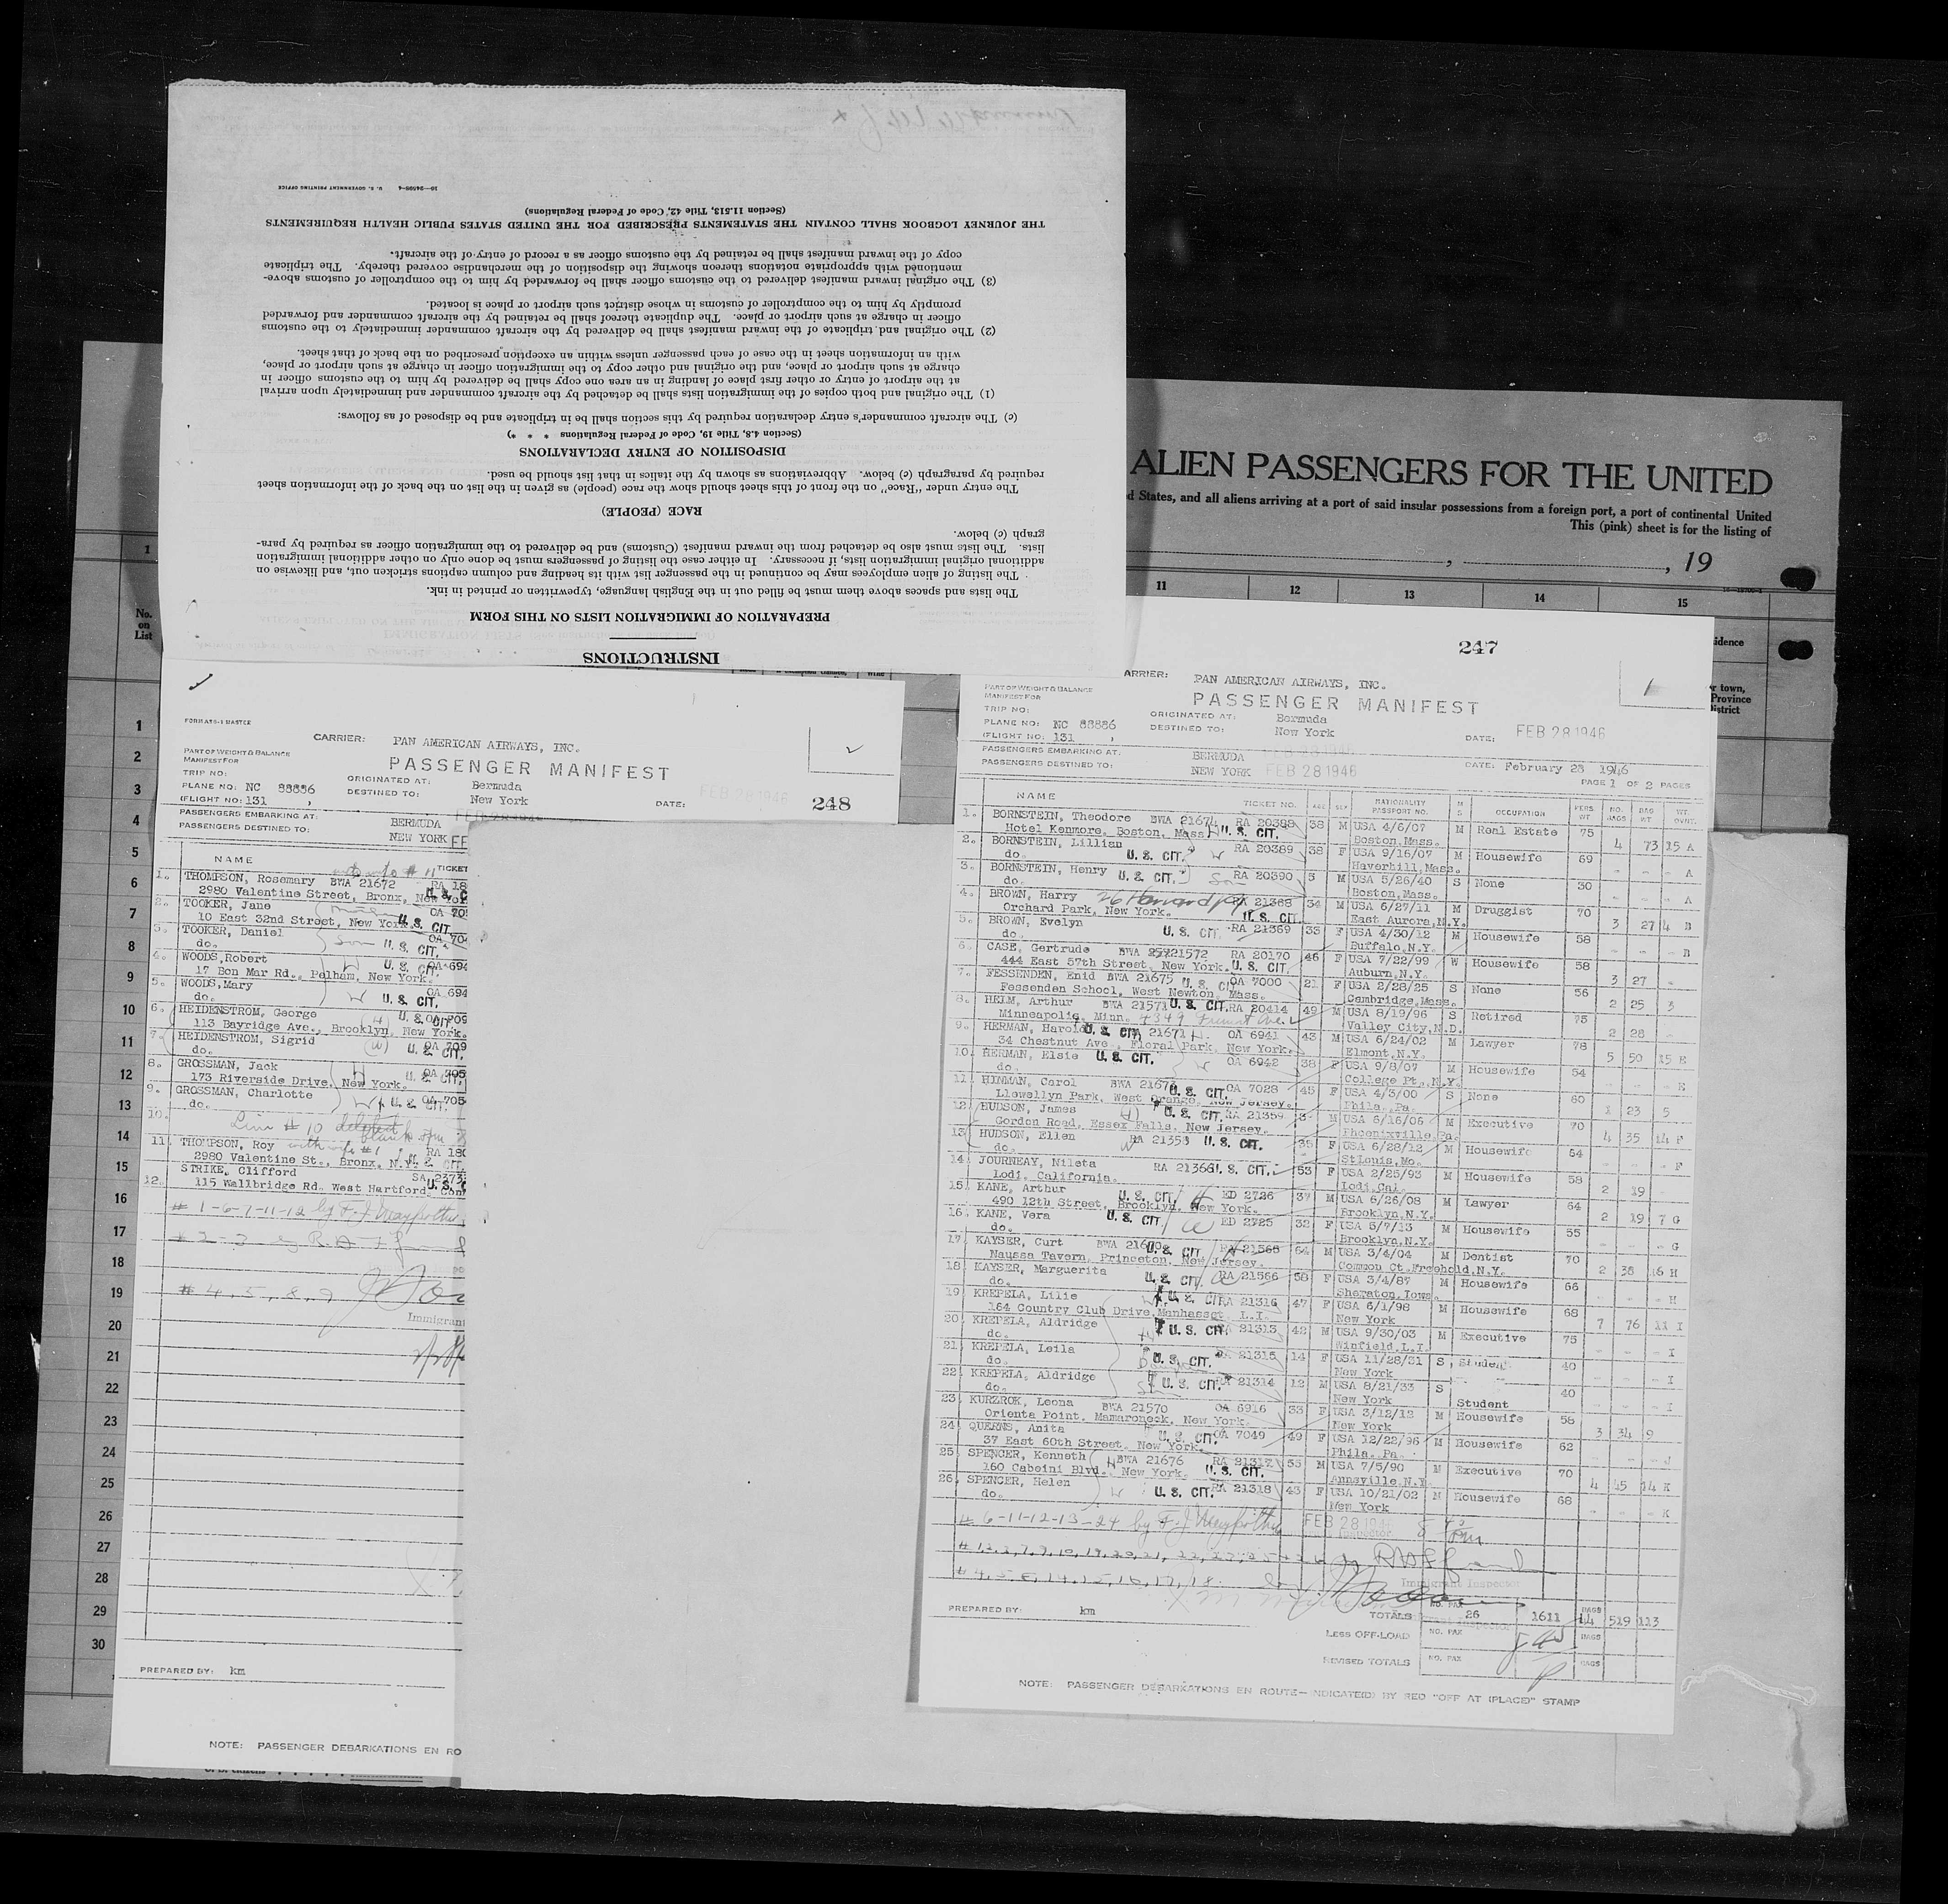 INSTRUCTIONS
PREPARATION OF IMMIGRATION LISTS ON THIS FORM
The lists and spaces above them must be filled out in the English language, typewritten or printed in ink.
The listing of alien employees may be continued in the passenger list with its heading and column captions stricken out, and likewise on
additional original immigration lists, if necessary. In either case the listing of passengers must be done only on other additional immigration
lists. The lists must also be detached from the inward manifest (Customs) and be delivered to the immigration officer as required by para-
graph (c) below.
RACE (PEOPLE)
The entry under "Race" on the front of this sheet should show the race (people) as given in the list on the back of the information sheet
required by paragraph (c) below. Abbreviations as shown by the italics in that list should be used.
DISPOSITION OF ENTRY DECLARATIONS
(Section 4.8, Title 19, Code of Federal Regulations * * *)
(c) The aircraft commander's entry declaration required by this section shall be in triplicate and be disposed of as follows:
(1) The original and both copies of the immigration lists shall be detached by the aircraft commander and immediately upon arrival
at the airport of entry or other first place of landing in an area one copy shall be delivered by him to the customs officer in
charge at such airport or place, and the original and other copy to the immigration officer in charge at such airport or place,
with an information sheet in the case of each passenger unless within an exception prescribed on the back of that sheet.
(2) The original and triplicate of the inward manifest shall be delivered by the aircraft commander immediately to the customs
officer in charge at such airport or place. The duplicate thereof shall be retained by the aircraft commander and forwarded
promptly by him to the comptroller of customs in whose district such airport or place is located.
(3) The original inward manifest delivered to the customs officer shall be forwarded by him to the comptroller of customs above-
mentioned with appropriate notations thereon showing the disposition of the merchandise covered thereby. The triplicate
copy of the inward manifest shall be retained by the customs officer as a record of entry of the aircraft.
THE JOURNEY LOGBOOK SHALL CONTAIN THE STATEMENTS PRESCRIBED FOR THE UNITED STATES PUBLIC HEALTH REQUIREMENTS
(Section 11.513, Title 42, Code of Federal Regulations)
U. S. GOVERNMENT PRINTING OFFICE
ALIEN PASSENGERS FOR THE UNITED
d States, and all aliens arriving at a port of said insular possessions from a foreign port, a port of continental United
This (pink) sheet is for the listing of
, 19
11 12 13 14 15
1
No.
on
List
1
2
3
4
5
6
7
8
9
10
11
12
13
14
15
16
17
18
19
20
21
22
23
24
25
26
27
28
29
30
CARRIER: PAN AMERICAN AIRWAYS, INC.
PART OF WEIGHT & BALANCE
MANIFEST FOR
PASSENGER MANIFEST
TRIP NO:
PLANE NO: NC 88886 ORIGINATED AT: Bermuda
FLIGHT NO: 131 DESTINED TO: New York DATE: FEB 28 1946 248
PASSENGERS EMBARKING AT: BERMUDA
PASSENGERS DESTINED TO: NEW YORK
NAME TICKET
1. THOMPSON, Rosemary BWA 21672
2980 Valentine Street, Bronx, New
2. TOOKER, Jane
10 East 32nd Street, New York. U. S. CIT.
3. TOOKER, Daniel Son
do. U. S. CIT.
4. WOODS, Robert
17 Bon Mar Rd., Pelham, New York.
5. WOODS, Mary
do. U. S. CIT.
6. HEIDENSTROM, George
113 Bayridge Ave., Brooklyn, New York.
7. HEIDENSTROM, Sigrid
do. U. S. CIT.
8. GROSSMAN, Jack
173 Riverside Drive, New York.
9. GROSSMAN, Charlotte
do. U. S. CIT.
10.
Line # 10 deleted
11. THOMPSON, Roy with wife #1
2980 Valentine St., Bronx, N.Y.
12. STRIKE, Clifford
115 Wallbridge Rd. West Hartford,
# 1-6-7-11-12 by F. J.
# 2-3
# 4, 5, 8, 9
PREPARED BY: km
NOTE: PASSENGER DEBARKATIONS EN RO
247
ARRIER: PAN AMERICAN AIRWAYS, INC.
PART OF WEIGHT & BALANCE
MANIFEST FOR
PASSENGER MANIFEST
TRIP NO:
PLANE NO: NC 88886 ORIGINATED AT: Bermuda
FLIGHT NO: 131 DESTINED TO: New York DATE: FEB 28 1946
PASSENGERS EMBARKING AT: BERMUDA DATE: February 28 1946
PASSENGERS DESTINED TO: NEW YORK FEB 28 1946 PAGE 1 OF 2 PAGES
NAME TICKET NO. AGE SEX NATIONALITY PASSPORT NO. M S OCCUPATION PERS. WT NO. BAGS BAG WT WT. OVNT.
1. BORNSTEIN, Theodore BWA 21674 RA 20388 38 M USA 4/6/07 M Real Estate 75
Hotel Kenmore, Boston, Mass. U. S. CIT. Boston, Mass. 4 73 15 A
2. BORNSTEIN, Lillian RA 20389 38 F USA 9/16/07 M Housewife 69
do. U. S. CIT. Haverhill, Mass. - - A
3. BORNSTEIN, Henry RA 20390 5 M USA 5/26/40 S None 30
do. U. S. CIT. Son Boston, Mass. - - A
4. BROWN, Harry RA 21368 34 M USA 6/27/11 M Druggist 70
Orchard Park, New York. U. S. CIT. East Aurora, N.Y. 3 27 4 B
5. BROWN, Evelyn RA 21369 33 F USA 4/30/12 M Housewife 58
do. U. S. CIT. Buffalo, N.Y. - - B
6. CASE, Gertrude BWA 21572 RA 20170 46 F USA 7/22/99 W Housewife 58
444 East 57th Street, New York. U. S. CIT. Auburn, N.Y. 3 27
7. FESSENDEN, Enid BWA 21675 OA 7000 21 F USA 2/28/25 S None 56
Fessenden School, West Newton, Mass. Cambridge, Mass. 2 25 3
8. HELM, Arthur BWA 21571 U. S. CIT. RA 20414 49 M USA 8/19/96 S Retired 75
Minneapolis, Minn. 4349 Fremont Ave. Valley City, N.D. 2 28
9. HERMAN, Harold OA 6941 43 M USA 6/24/02 M Lawyer 78
34 Chestnut Ave., Floral Park, New York. Elmont, N.Y. 5 50 15 E
10. HERMAN, Elsie U. S. CIT. OA 6942 38 F USA 9/8/07 M Housewife 54
do. College Pt., N.Y. - - E
11. HINMAN, Carol OA 7028 45 F USA 4/3/00 S None 60
Llewellyn Park, West Orange, New Jersey. Phila., Pa. 1 23 5
12. HUDSON, James RA 21359 M USA 6/16/06 M Executive 70
Gordon Road, Essex Falls, New Jersey. Phoenixville, Pa. 4 35 14 F
13. HUDSON, Ellen RA 21358 U. S. CIT. 35 F USA 6/28/12 M Housewife 54
do. St Louis, Mo. - - F
14. JOURNEAY, Nileta RA 21366 U. S. CIT. 53 F USA 2/25/93 M Housewife 58
Lodi, California. Lodi, Cal. 2 19
15. KANE, Arthur U. S. CIT. ED 2726 37 M USA 6/26/08 M Lawyer 64
490 12th Street, Brooklyn, New York. Brooklyn, N.Y. 2 19 7 G
16. KANE, Vera U. S. CIT. ED 2725 32 F USA 5/7/13 M Housewife 55
do. Brooklyn, N.Y. - - G
17. KAYSER, Curt U. S. CIT. RA 21565 64 M USA 3/4/04 M Dentist 70
Naussa Tavern, Princeton, New Jersey. Common Ct. Freehold, N.Y. 2 38 16 H
18. KAYSER, Marguerita U. S. CIT. RA 21566 58 F USA 3/4/87 M Housewife 66
do. Sheraton, Iowa. - - H
19. KREPELA, Lilie U. S. CIT. RA 21316 47 F USA 6/1/98 M Housewife 68
164 Country Club Drive, Manhasset, L.I. New York 7 76 11 I
20. KREPELA, Aldridge U. S. CIT. 21313 42 M USA 9/30/03 M Executive 75
do. Winfield, L.I. - - I
21. KREPELA, Leila U. S. CIT. 21315 14 F USA 11/28/31 S Student 40
do. New York - - I
22. KREPELA, Aldridge U. S. CIT. 21314 12 M USA 8/21/33 S 40
do. New York Student - - I
23. KURZROK, Leona BWA 21570 OA 6916 33 F USA 3/12/12 M Housewife 56
Orienta Point, Mamaroneck, New York. New York 3 34 9
24. QUEENS, Anita U. S. CIT. OA 7049 49 F USA 12/22/96 M Housewife 62
37 East 60th Street, New York. Phila. Pa. - - J
25. SPENCER, Kenneth BWA 21676 RA 21317 55 M USA 7/5/90 M Executive 70
160 Cabeini Blvd., New York. U. S. CIT. Annsville, N.Y. 4 45 14 K
26. SPENCER, Helen U. S. CIT. RA 21318 43 F USA 10/21/02 M Housewife 68
do. New York - - K
# 6-11-12-13-24 by F. J. FEB 28 1946
# 4, 5, 8, 14, 15, 16, 17, 18
Immigrant Inspector
PREPARED BY: km TOTALS NO. PAX 26 1611 BAGS 44 519 113
LESS OFF-LOAD NO. PAX BAGS
REVISED TOTALS NO. PAX BAGS
NOTE: PASSENGER DEBARKATIONS EN ROUTE—INDICATED BY RED "OFF AT (PLACE)" STAMP